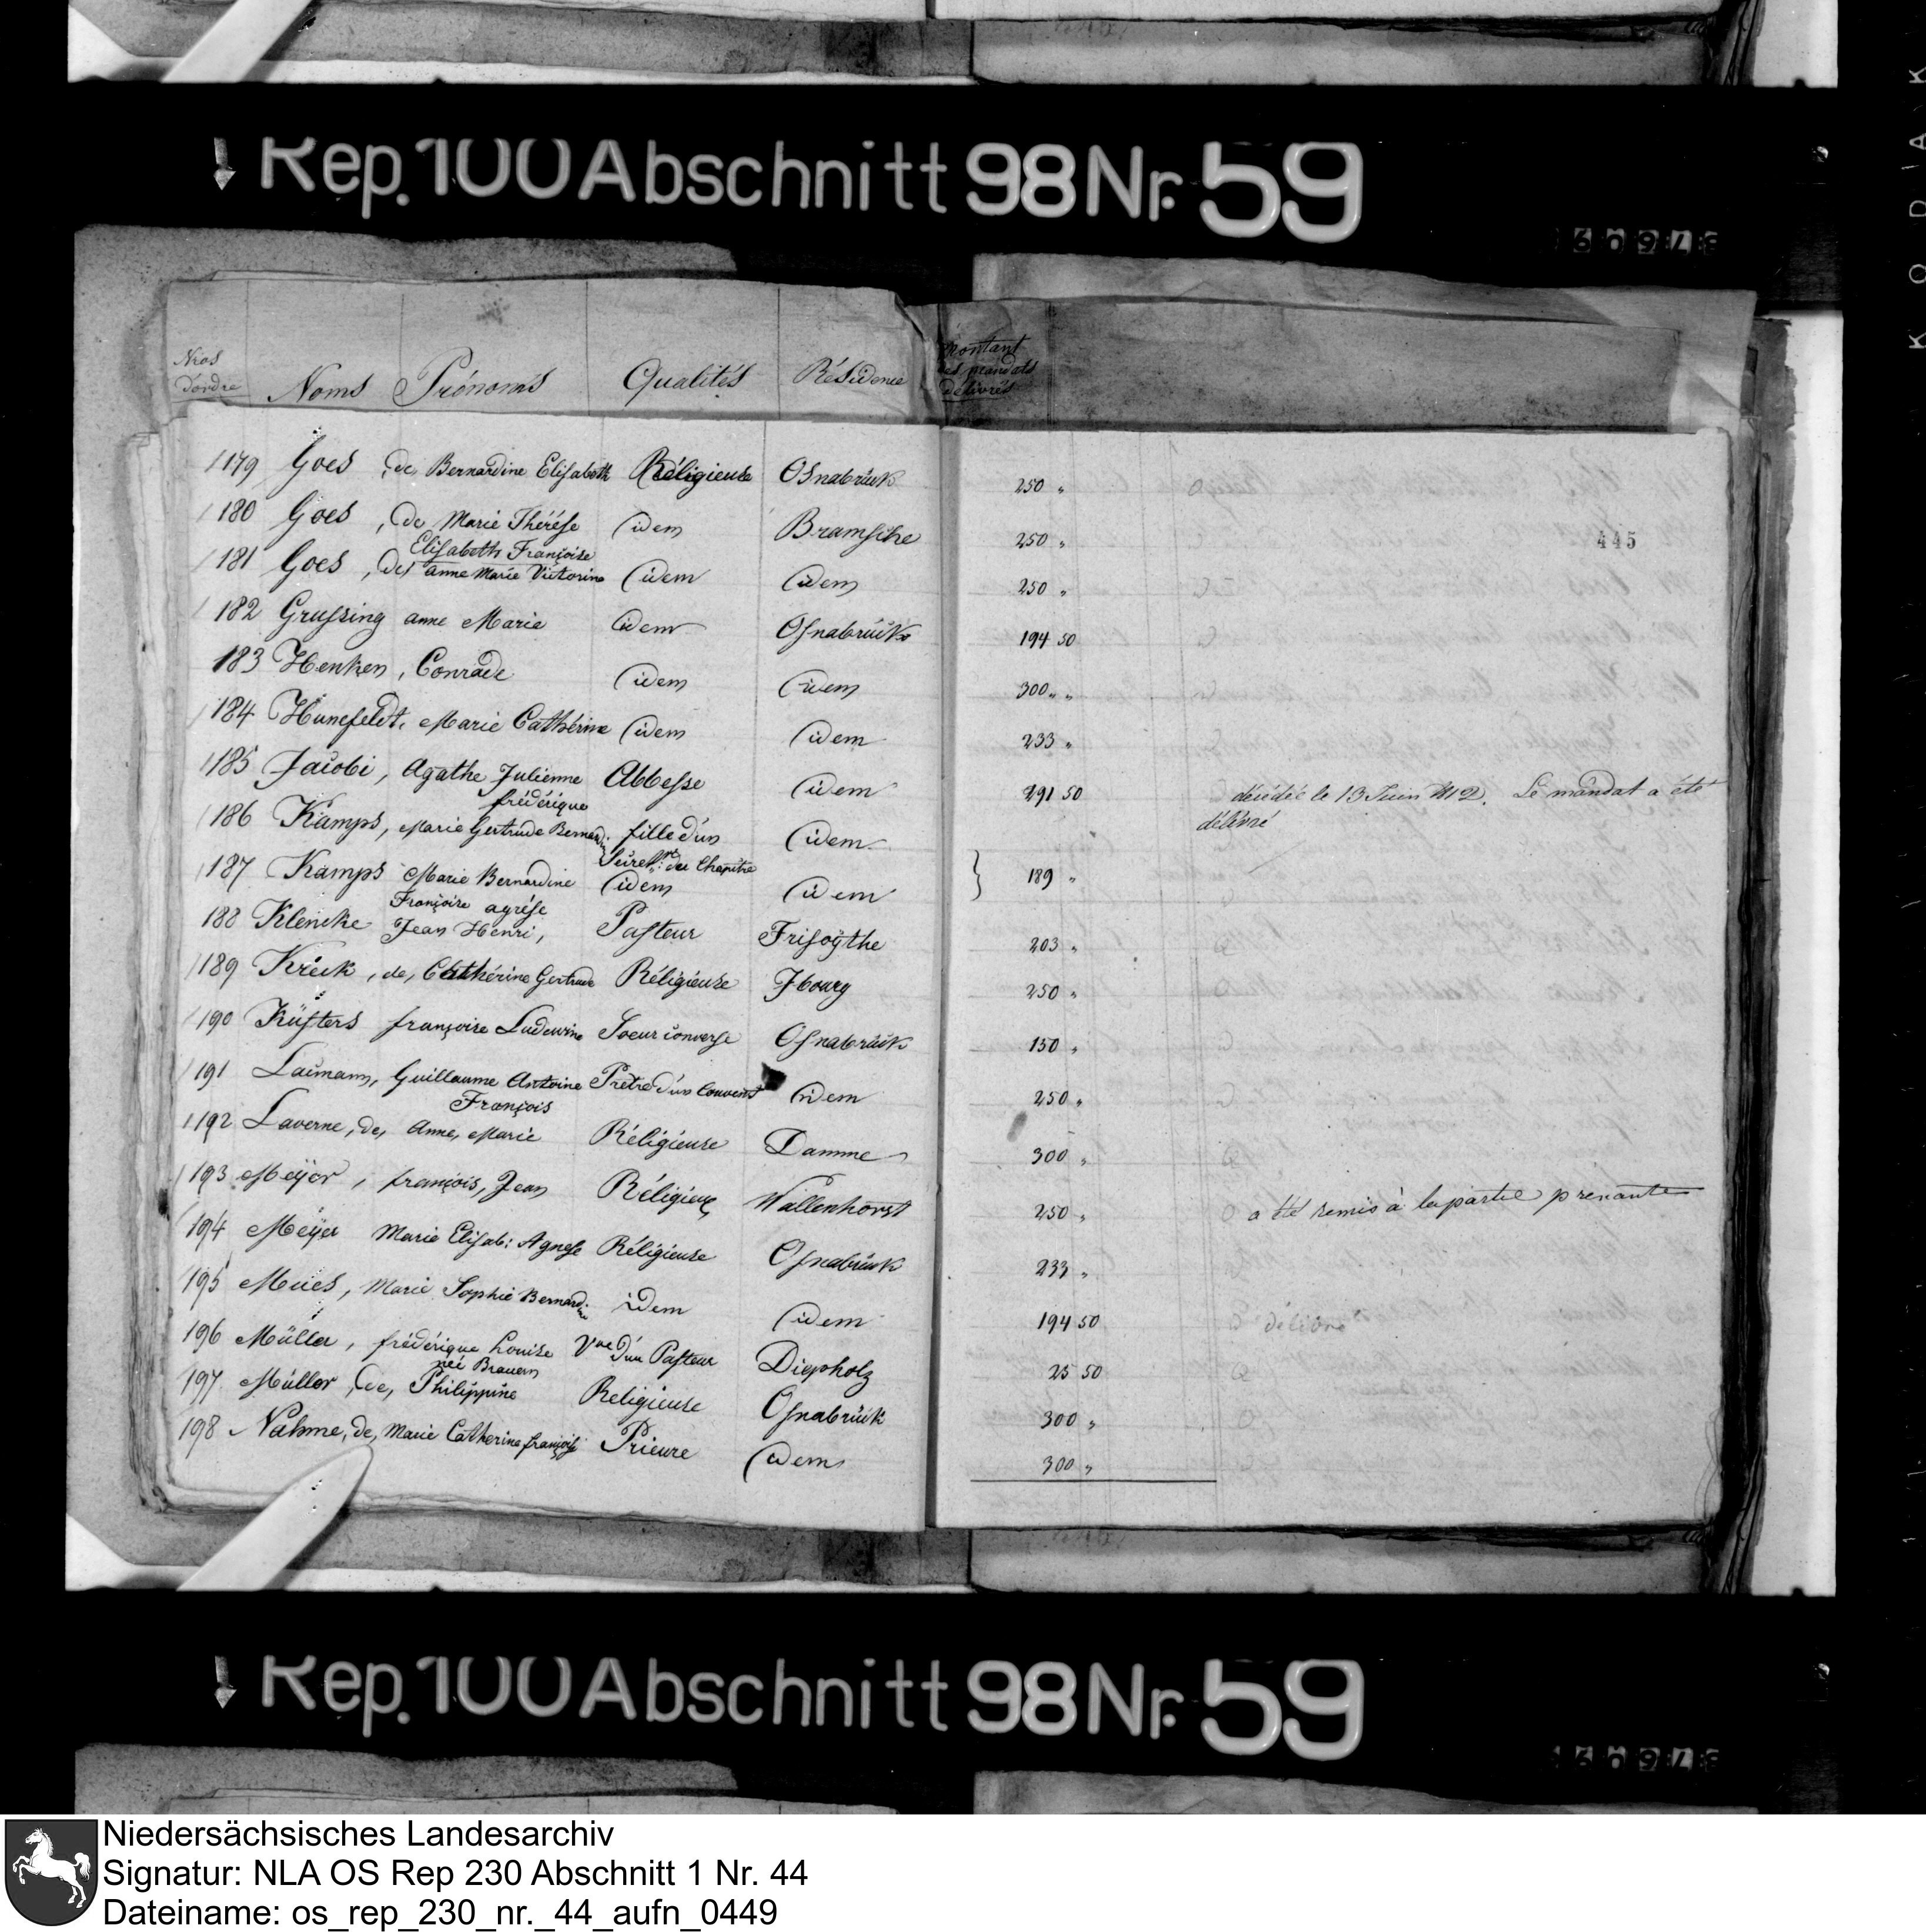 Rep. 100 Abschnitt 98 Nr. 59
Nros d'ordre Noms Prénoms Qualités Résidence Montant des mandats délivrés
445
179 Goes, de Bernardine Elisabeth Réligieuse Osnabrück 250 "
180 Goes, de Marie Thérése idem Bramsche 250 "
181 Goes, de Elisabeth Françoise anne Marie Victorine idem idem 250 "
182 Grussing anne Marie idem Osnabrück 194 50
183 Henken, Conrade idem idem 300 "
184 Hunefeldt, Marie Cathérine idem idem 233 "
185 Jacobi, Agathe Julienne frédérique Abbesse idem 291 50 décédée le 13 Juin 1812. Le mandat a été délivré
186 Kamps, Marie Gertrude Bernardi fille d'un Secret. du Chapitre idem
187 Kamps Marie Bernardine Françoise agnése idem idem } 189 "
188 Klencke Jean Henri, Pasteur Frisoÿthe 203 "
189 Kreck, de, Cathérine Gertrude Réligieuse Jbourg 250 "
190 Küsters françoise Ludewine Soeur converse Osnabrück 150 "
191 Laumann, Guillaume Antoine François Prètre d'un Couvent idem 250 "
192 Laverne, de, Anne, Marie Réligieuse Damme 300 "
193 Meÿer, françois, Jean Réligieux Wallenhorst 250 " a été remis à la partie prenante
194 Meÿer Marie Elisab: Agnese Réligieuse Osnabrück 233 "
195 Mües, Marie Sophie Bernardine idem idem 194 50 délivré
196 Müller, frédérique Louise née Brauern Vve d'un Pasteur Diepholz 25 50
197 Müller, de, Philippine Religieuse Osnabrück 300 "
198 Nahme, de, Marie Catherine françoise Prieure idem 300 "
Rep. 100 Abschnitt 98 Nr. 59
KODAK
Niedersächsisches Landesarchiv
Signatur: NLA OS Rep 230 Abschnitt 1 Nr. 44
Dateiname: os_rep_230_nr._44_aufn_0449